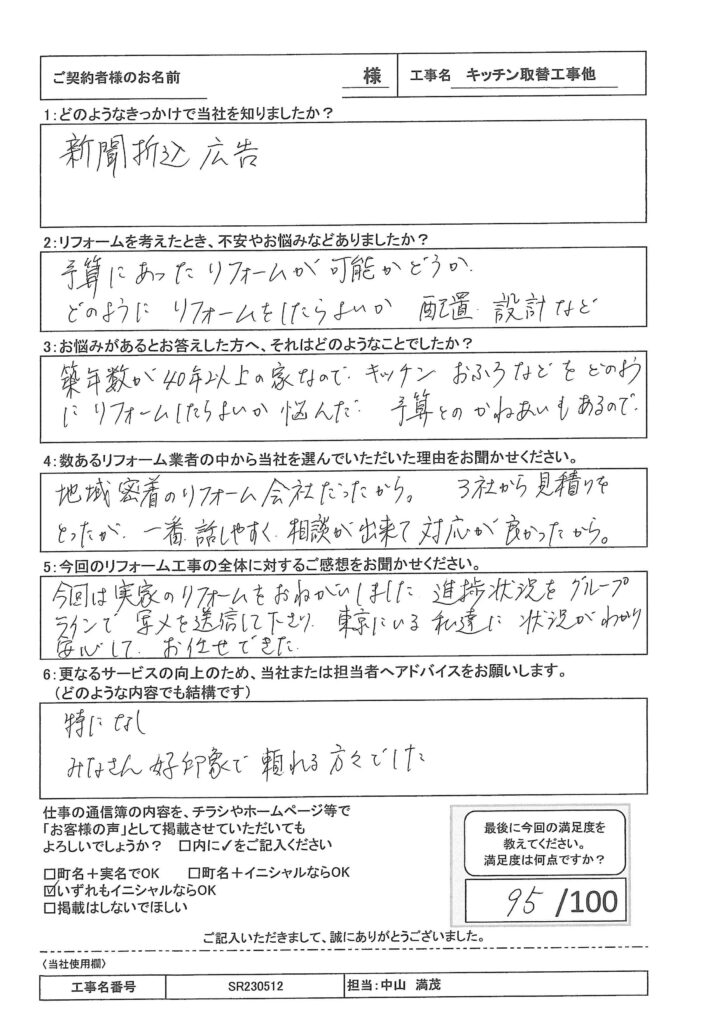 ご契約者様のお名前 様 工事名 キッチン取替工事他
1:どのようなきっかけで当社を知りましたか？
新聞折込広告
2:リフォームを考えたとき、不安やお悩みなどありましたか？
予算にあったリフォームが可能かどうか.
どのように リフォームをしたらよいか 配置. 設計など
3:お悩みがあるとお答えした方へ、それはどのようなことでしたか？
築年数が40年以上の家なので. キッチン おふろなどをどのよう
にリフォームしたらよいか 悩んだ. 予算とのかねあいもあるので.
4:数あるリフォーム業者の中から当社を選んでいただいた理由をお聞かせください。
地域密着のリフォーム会社だったから。 3社から見積りを
とったが. 一番.話しやすく.相談が出来て対応が良かったから。
5:今回のリフォーム工事の全体に対するご感想をお聞かせください。
今回は実家のリフォームをおねがいしました. 進捗状況をグループ
ラインで 写メを送信して下さり. 東京にいる私達に 状況がわかり
安心して. お任せできた.
6:更なるサービスの向上のため、当社または担当者へアドバイスをお願いします。
（どのような内容でも結構です）
特になし
みなさん 好印象で 頼れる方々でした
仕事の通信簿の内容を、チラシやホームページ等で
「お客様の声」として掲載させていただいても
よろしいでしょうか？ □内に✓をご記入ください
□町名＋実名でOK □町名＋イニシャルならOK
☑いずれもイニシャルならOK
□掲載はしないでほしい
最後に今回の満足度を
教えてください。
満足度は何点ですか？
95 /100
ご記入いただきまして、誠にありがとうございました。
〈当社使用欄〉
工事名番号 SR230512 担当:中山 満茂